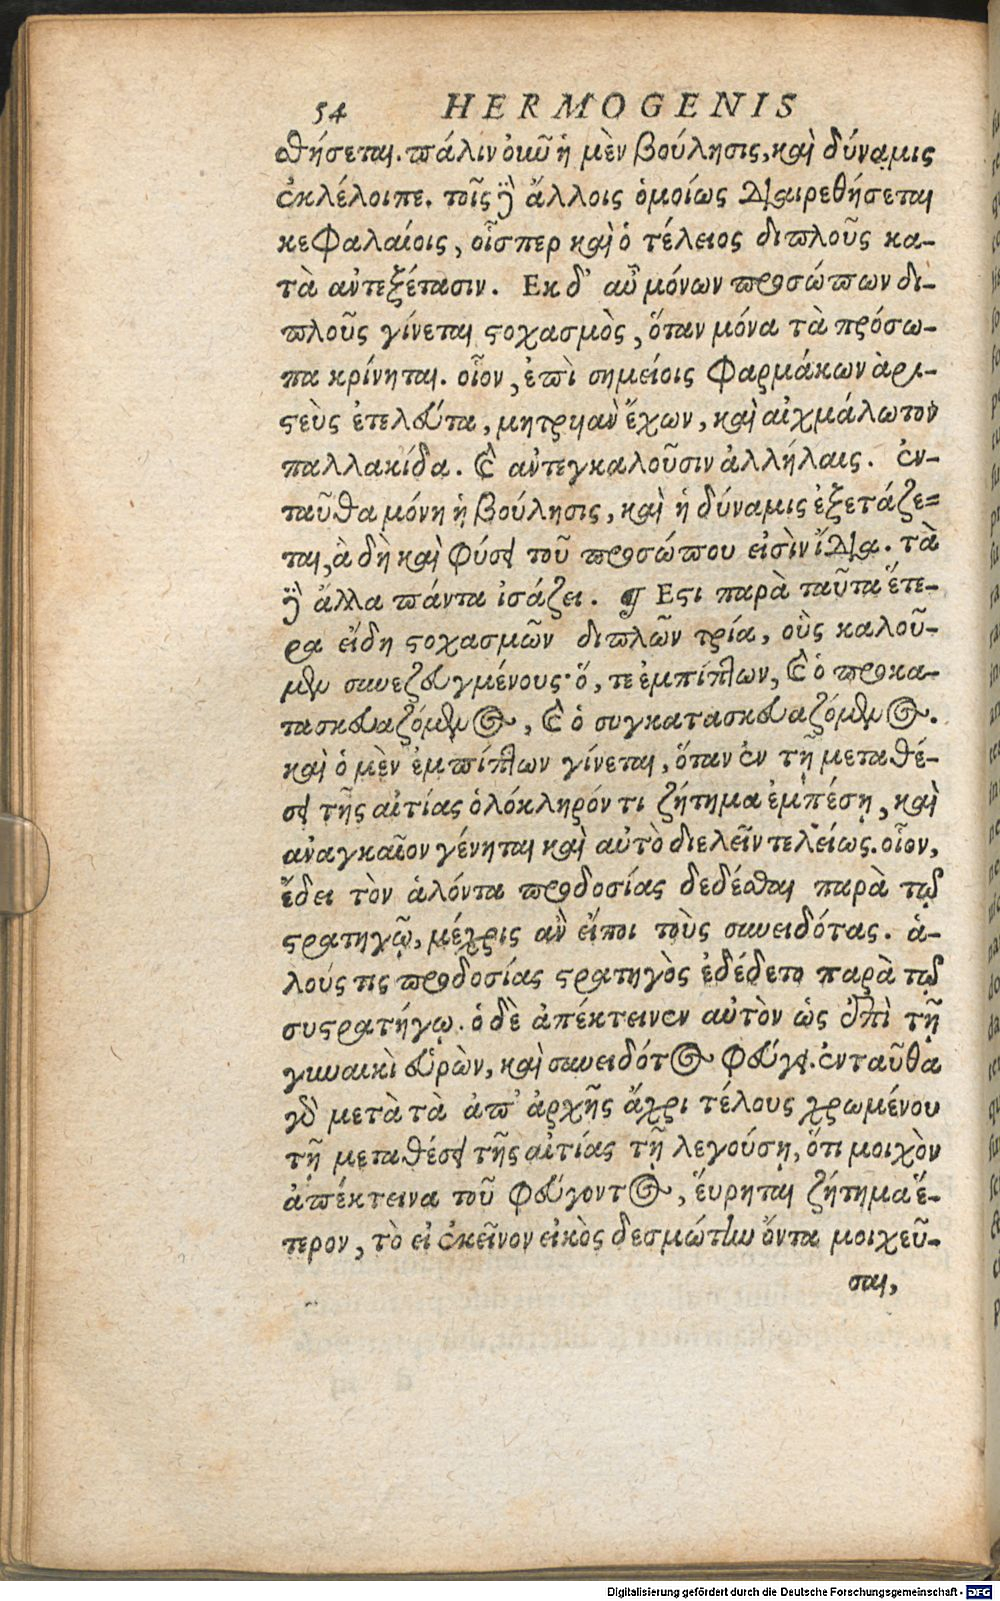 54 HERMOGENIS
θήσεται. πάλιν οὐκοῦν ἡ μὲν βούλησις, καὶ δύναμις
ἐκλέλοιπε. τοῖς δὲ ἄλλοις ὁμοίως διαιρεθήσεται
κεφαλαίοις, οἷσπερ καὶ ὁ τέλειος διπλοῦς κα-
τὰ ἀντεξέτασιν. Εκ δ' αὖ μόνων προσώπων δι-
πλοῦς γίνεται στοχασμὸς, ὅταν μόνα τὰ πρόσω-
πα κρίνηται. οἷον, ἐπὶ σημείοις φαρμάκων ἀρι-
στεὺς ἐτελεύτα, μητρυιὰν ἔχων, καὶ αἰχμάλωτον
παλλακίδα. καὶ ἀντεγκαλοῦσιν ἀλλήλαις. ἐν-
ταῦθα μόνη ἡ βούλησις, καὶ ἡ δύναμις ἐξετάζε-
ται, ἃ δὴ καὶ φύσει τοῦ προσώπου εἰσὶν ἴδια. τὰ
δὲ ἄλλα πάντα ἰσάζει. ¶ Εστι παρὰ ταῦτα ἕτε-
ρα εἴδη στοχασμῶν διπλῶν τρία, οὓς καλοῦ-
μεν συνεζευγμένους· ὅ, τε ἐμπίπτων, καὶ ὁ προκα-
τασκευαζόμενος, καὶ ὁ συγκατασκευαζόμενος.
καὶ ὁ μὲν ἐμπίπτων γίνεται, ὅταν ἐν τῇ μεταθέ-
σει τῆς αἰτίας ὁλόκληρόν τι ζήτημα ἐμπέσῃ, καὶ
ἀναγκαῖον γένηται καὶ αὐτὸ διελεῖν τελείως. οἷον,
ἔδει τὸν ἁλόντα προδοσίας δεδέσθαι παρὰ τῷ
στρατηγῷ, μέχρις ἂν εἴποι τοὺς συνειδότας. ἁ-
λούς τις προδοσίας στρατηγὸς ἐδέδετο παρὰ τῷ
συστρατήγῳ. ὁ δὲ ἀπέκτεινεν αὐτὸν ὡς ἐπὶ τῇ
γυναικὶ εὑρὼν, καὶ συνειδότος φεύγει. ἐνταῦθα
γὰρ μετὰ τὰ ἀπ' ἀρχῆς ἄχρι τέλους χρωμένου
τῇ μεταθέσει τῆς αἰτίας τῇ λεγούσῃ, ὅτι μοιχὸν
ἀπέκτεινα τοῦ φεύγοντος, ἕυρηται ζήτημα ἕ-
τερον, τὸ εἰ ἐκεῖνον εἰκὸς δεσμώτην ὄντα μοιχεῦ-
σαι,
Digitalisierung gefördert durch die Deutsche Forschungsgemeinschaft - DFG